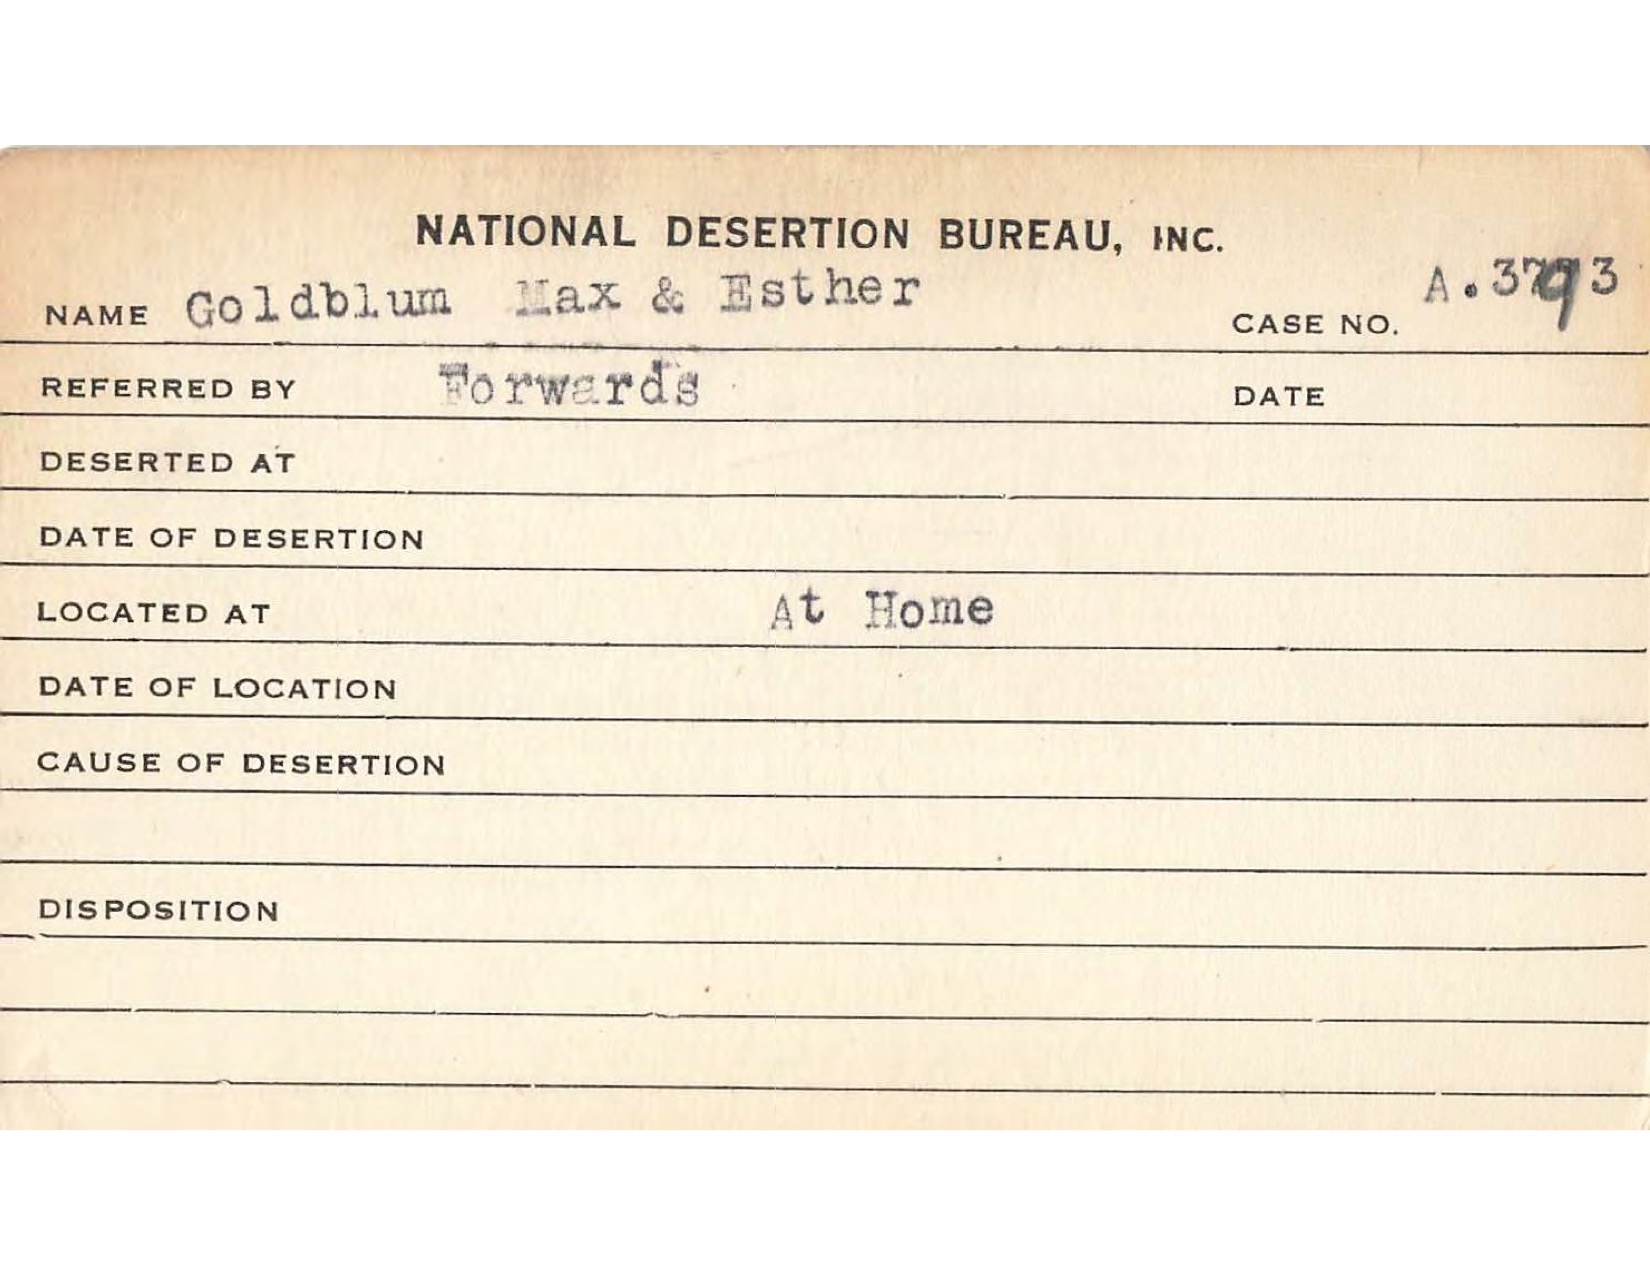 NATIONAL DESERTION BUREAU, INC.
NAME Goldblum Max & Esther CASE NO. A.3793
REFERRED BY Forwards DATE
DESERTED AT
DATE OF DESERTION
LOCATED AT At Home
DATE OF LOCATION
CAUSE OF DESERTION
DISPOSITION